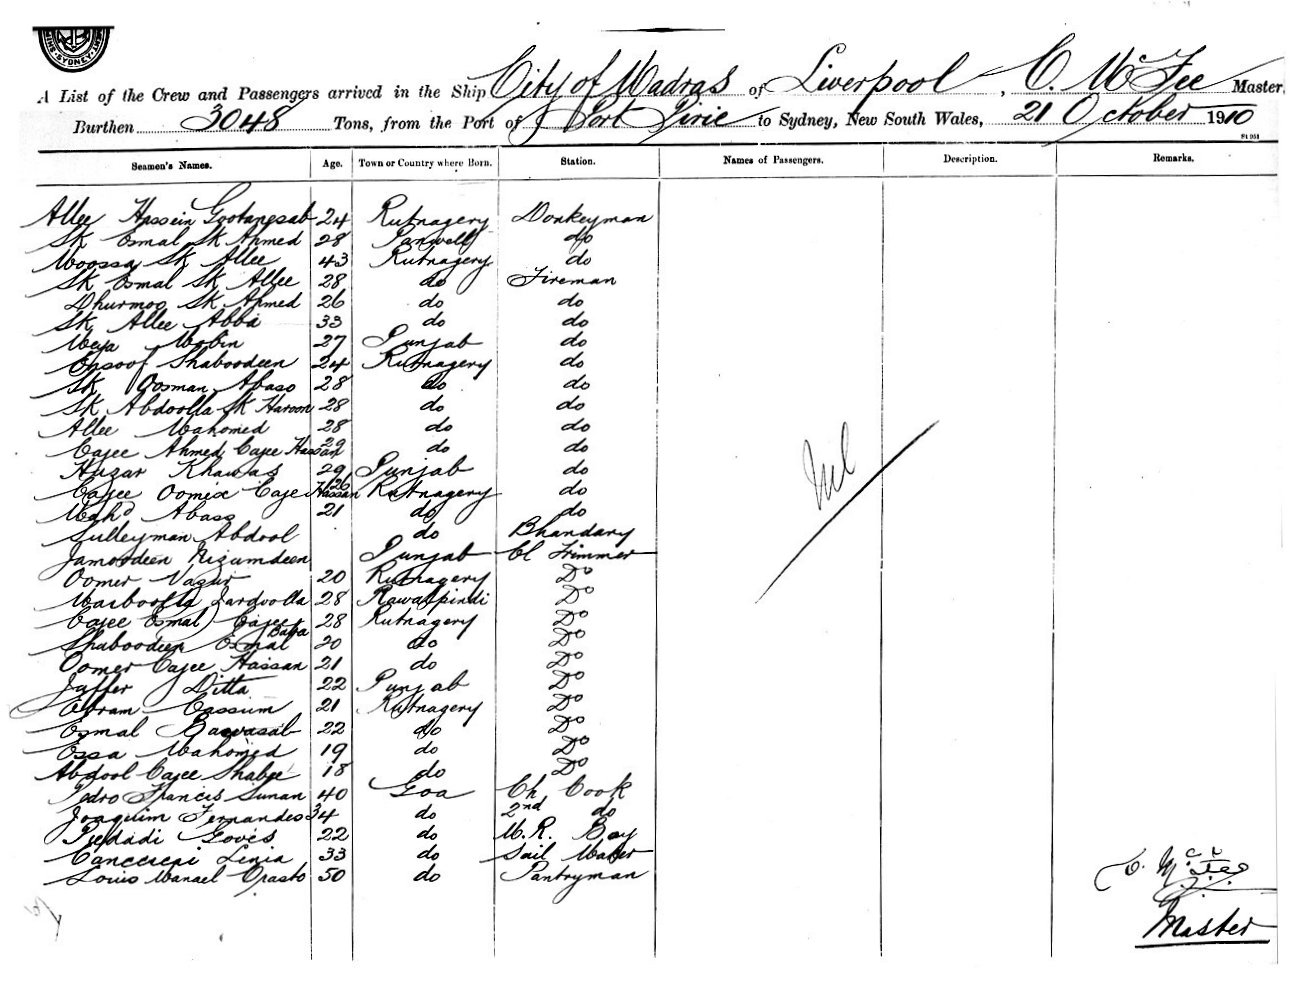 SYDNEY
A List of the Crew and Passengers arrived in the Ship City of Madras of Liverpool, C. McFee Master,
Burthen 3048 Tons, from the Port of Port Pirie to Sydney, New South Wales, 21 October 1910
Seamen's Names. Age. Town or Country where Born. Station. Names of Passengers. Description. Remarks.
Allee Hassein Gootangsab 24 Rutnagery Donkeyman
Sk Esmal Sk Ahmed 28 Panwell do
Moossa Sk Allee 43 Rutnagery do
Sk Esmal Sk Allee 28 do Fireman
Dhurmoo Sk Ahmed 26 do do
Sk Allee Abba 33 do do
Meya Mobin 27 Punjab do
Shaboodeen 24 Rutnagery do
Sk Oosman Abaso 28 do do
Sk Abdoolla Sk Haroon 28 do do
Allee Mahomed 28 do do
Cajee Ahmed Cajee Hassan 29 do do
Huzar Khawas 29 Punjab do
Cajee Cajee Hassan 26 Rutnagery do
Mahd Abass 21 do do
Sulleyman Abdool do Bhandary
Jamoodeen Nizumdeen Punjab Cl Trimmer
Oomer 20 Rutnagery Do
28 Rawalpindi Do
Cajee Esmal Cajee Bawa 28 Rutnagery Do
Shaboodeen Esmal 20 do Do
Oomer Cajee Hassan 21 do Do
Jaffer Ditta 22 Punjab Do
Ebram Cassum 21 Rutnagery Do
Esmal Bawasab 22 do Do
Essa Mahomed 19 do Do
Abdool Cajee 18 do Do
Pedro Francis Sunan 40 Goa Ch Cook
Joaquim Fernandes 34 do 2nd do
Piedadi Goves 22 do M.R. Boy
33 do Sail Maker
Louis Manael 50 do Pantryman
Nil
C. McFee
Master